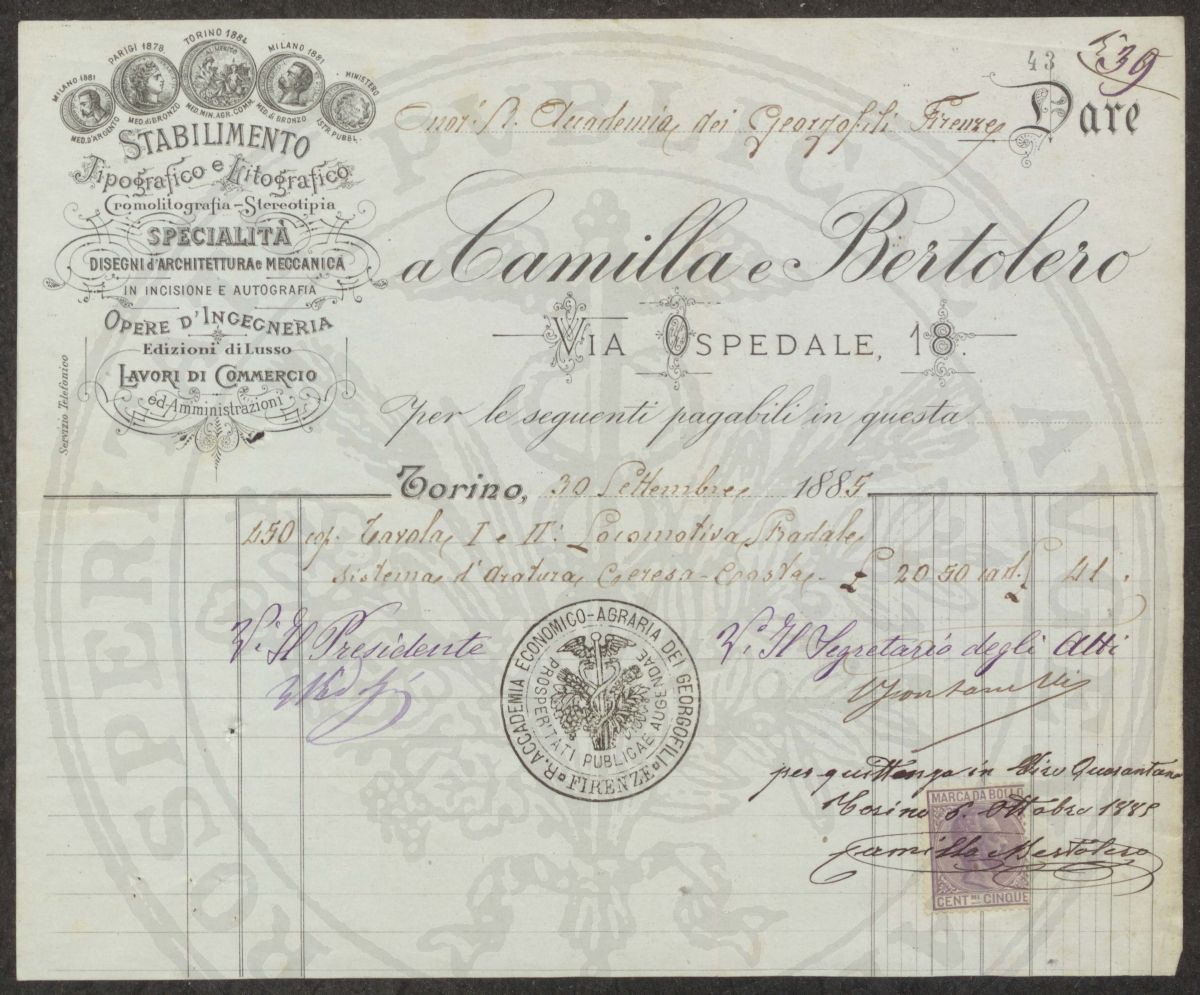 MILANO 1881
MED. D'ARGENTO
PARIGI 1878.
MED. di BRONZO
TORINO 1884
AL MERITO
MED. MIN. AGR. COMM.
MILANO 1881
MED. di BRONZO
MINISTERO
ISTR. PUBBL.
STABILIMENTO
Tipografico e Litografico
Cromolitografia-Stereotipia
SPECIALITÀ
DISEGNI d'ARCHITETTURA e MECCANICA
IN INCISIONE E AUTOGRAFIA
OPERE D'INGEGNERIA
Edizioni di Lusso
LAVORI DI COMMERCIO
ed Amministrazioni
Servizio Telefonico
43
39
Onor: R. Accademia dei Georgofili Firenze Dare
a Camilla e Bertolero
VIA OSPEDALE, 18.
per le seguenti pagabili in questa
Torino, 30 Settembre 1885
450 cop. Tavola I e II: Locomotiva Stradale
sistema d'Aratura Ceresa-Costa - £ 20 50 cad. £ 41.
V: Il Presidente
V: Il Segretario degli Atti
R. ACCADEMIA ECONOMICO-AGRARIA DEI GEORGOFILI
FIRENZE
PROSPERITATI PUBLICAE AUGENDAE
per quittanza in Lire Quarantuna
Torino 6. Ottobre 1885
Camilla e Bertolero
MARCA DA BOLLO
CENT. MI CINQUE
PROSPERITATI PVBLICAE AVGENDAE